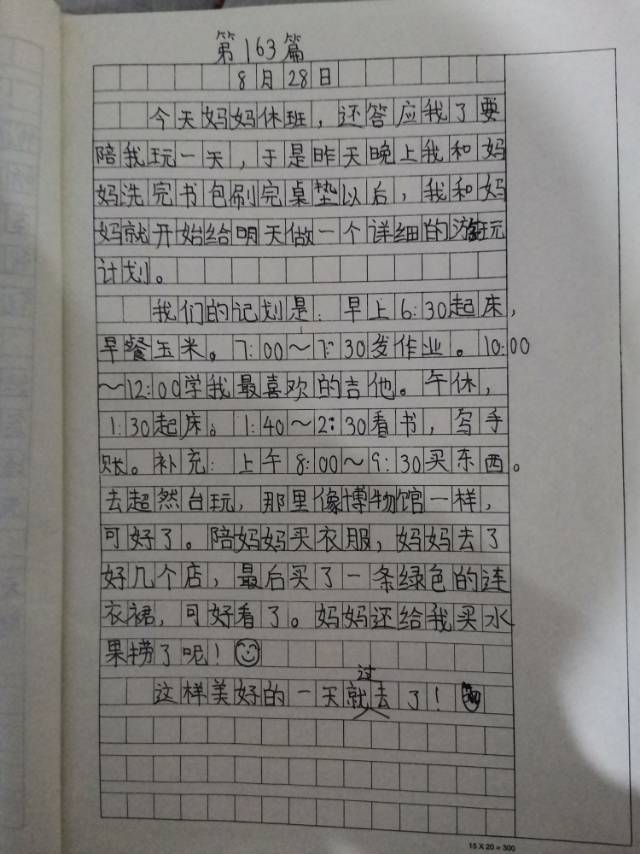 第163篇
8月28日
今天妈妈休班，还答应我了要
陪我玩一天，于是昨天晚上我和妈
妈洗完书包刷完桌垫以后，我和妈
妈就开始给明天做一个详细的游玩
计划。
我们的记划是：早上6:30起床，
早餐玉米。7:00～7:30发作业。10:00
～12:00学我最喜欢的吉他。午休，
1:30起床。1:40～2:30看书，写手
账。补充：上午8:00～9:30买东西。
去超然台玩，那里像博物馆一样，
可好了。陪妈妈买衣服，妈妈去了
好几个店，最后买了一条绿色的连
衣裙，可好看了。妈妈还给我买水
果捞了呢！
这样美好的一天就过去了！
15×20=300